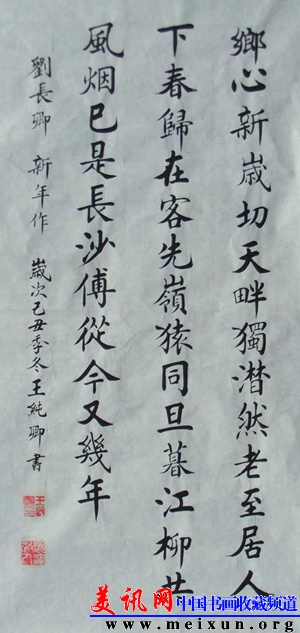 鄉心新歲切天畔獨潸然老至居人
下春歸在客先嶺猿同旦暮江柳共
風烟已是長沙傅從今又幾年
劉長卿 新年作 歲次己丑季冬王純卿書
美讯网 中国书画收藏频道
www.meixun.org